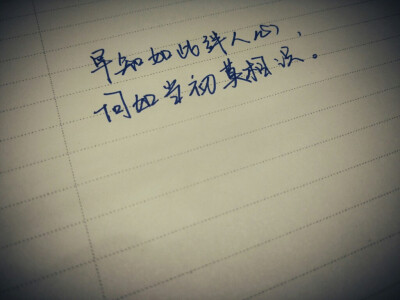 早知如此绊人心，
何如当初莫相识。